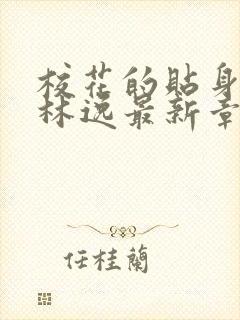 校花的貼身
林逸最新章
任桂蘭